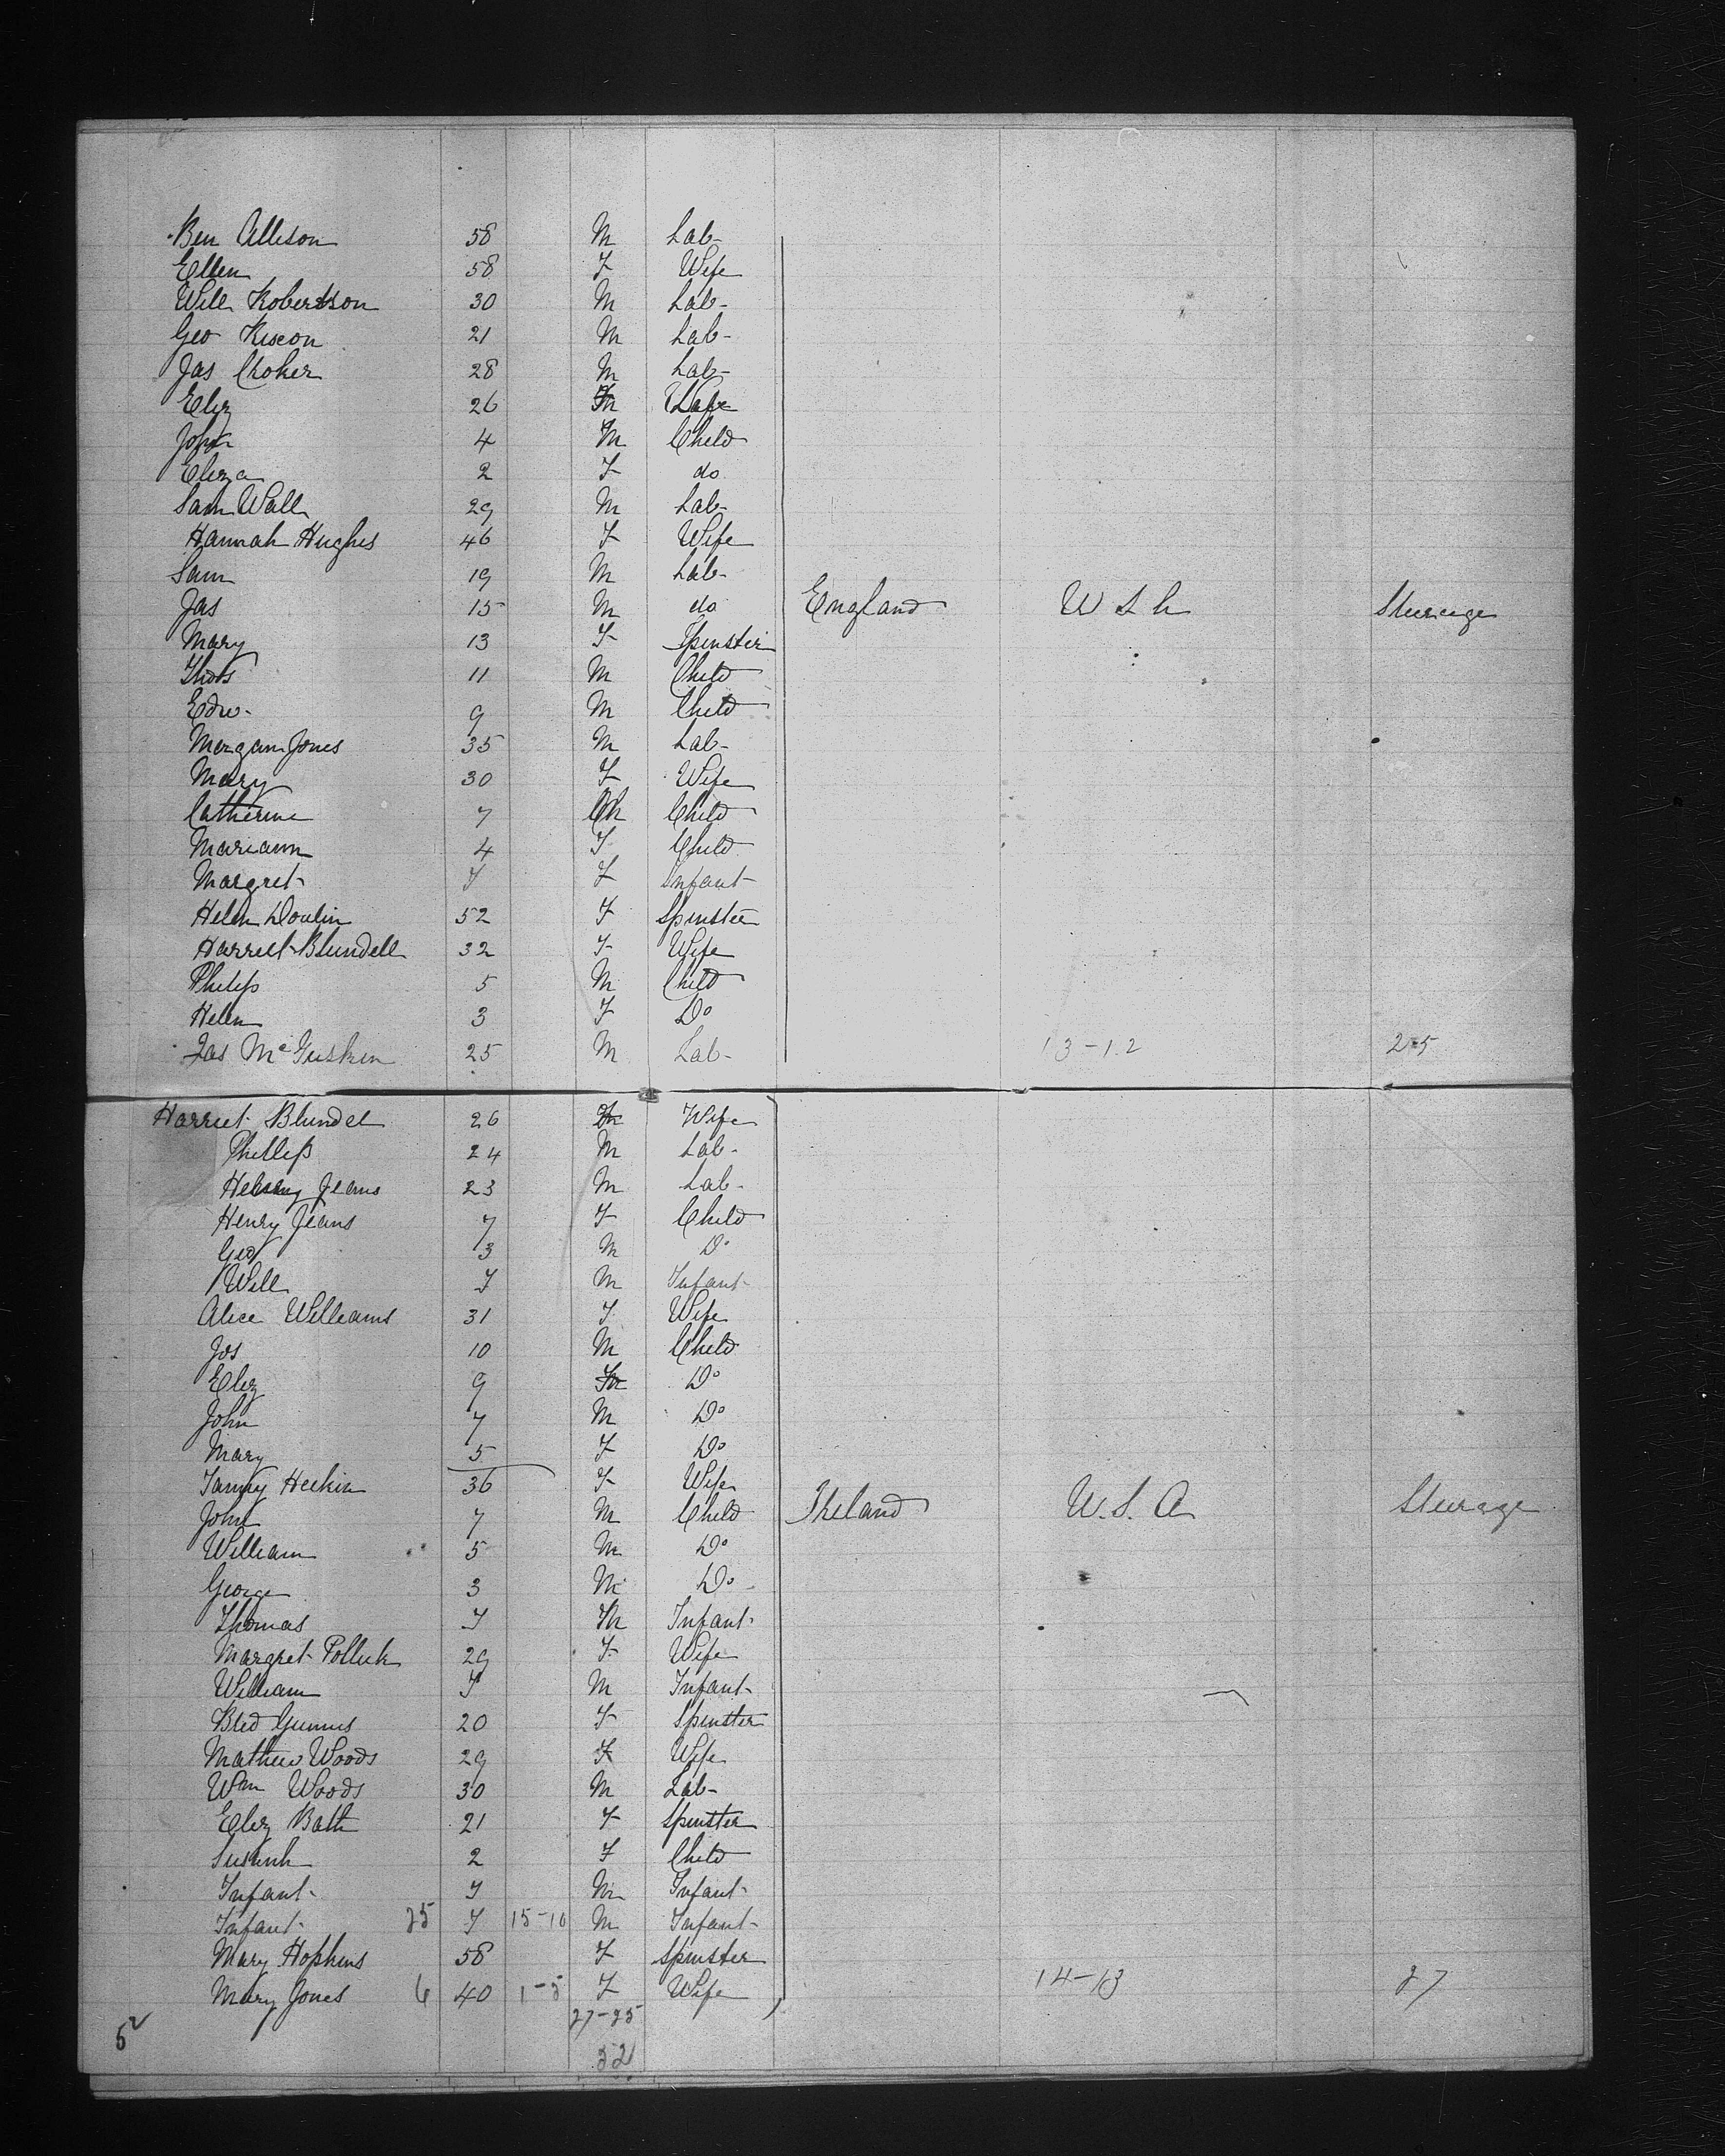 Ben Allison 58 M Lab-
Ellen 58 F Wife
Will Robertson 30 M Lab-
Geo 21 M Lab-
Jas Choker 28 M Lab-
Eliz 26 Wife
John 4 M Child
Eliza 2 F do
Sam Wall 29 M Lab-
Hannah Hughes 46 F Wife
Sam 19 M Lab-
Jas 15 M do England Steerage
Mary 13 F Spinster
Thos 11 M Child
Edw- 9 M Child
Morgan Jones 35 M Lab-
Mary 30 F Wife
Catherine 7 Ch Child
Mariann 4 F Child
Margret I F Infant
Helen Doulin 52 F Spinster
Harriet Blundell 32 F Wife
Philip 5 M Child
Helen 3 F Do
Jas McGuskin 25 M Lab- 13-12 25
Harriet Blundel 26 Wife
Phillip 24 M Lab-
Jeans 23 M Lab-
Henry Jeans 7 F Child
Geo 3 M Do
Will I M Infant
Alice Williams 31 F Wife
Jos 10 M Child
Eliz 9 Do
John 7 M Do
Mary 5 F Do
Heekin 36 F Wife
John 7 M Child Ireland U.S.A Steerage
William 5 M Do
George 3 M Do
Thomas I M Infant
Margret Polluk 29 F Wife
William I M Infant
Bled 20 F Spinster
Mathew Woods 29 F Wife
Wm Woods 30 M Lab-
Eliz Bath 21 F Spinster
Susanh 2 F Child
Infant I M Infant
Infant 25 I 15-10 M Infant
Mary Hopkins 58 F Spinster
Mary Jones 6 40 1-5 F Wife 14-13 27
27-25
52 52